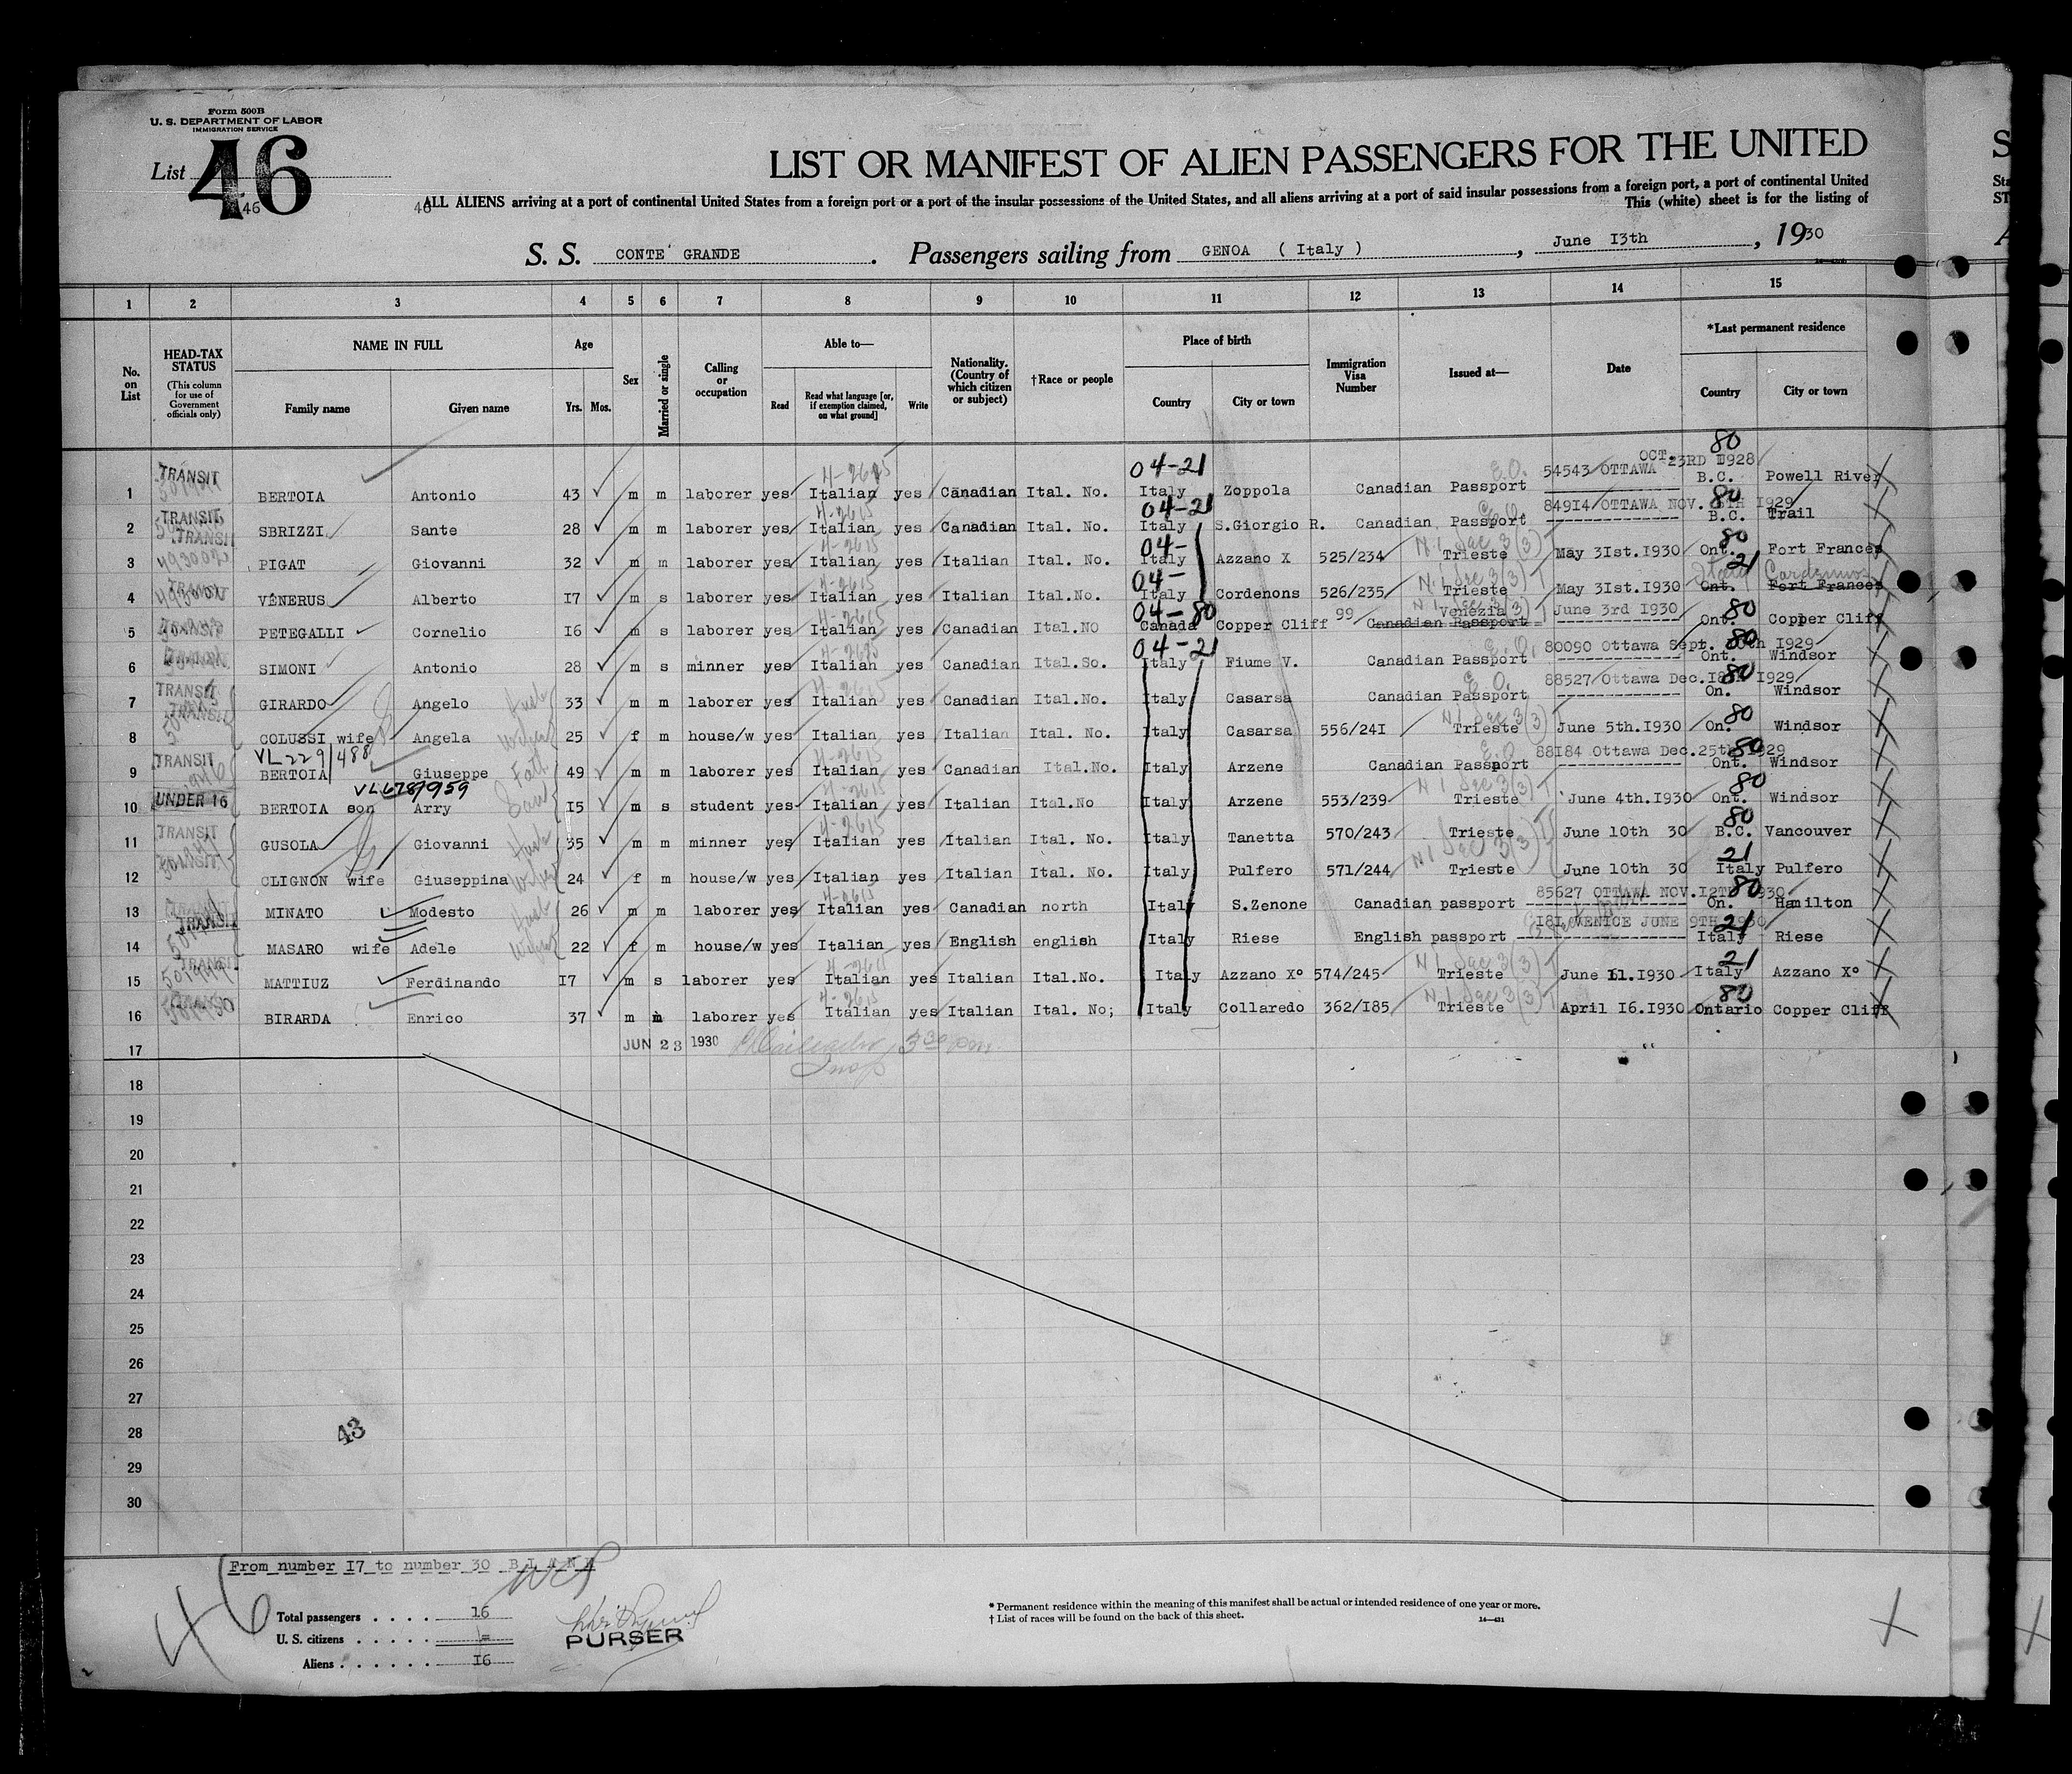 Form 500B
U. S. DEPARTMENT OF LABOR
IMMIGRATION SERVICE
List 46
46
46
LIST OR MANIFEST OF ALIEN PASSENGERS FOR THE UNITED
ALL ALIENS arriving at a port of continental United States from a foreign port or a port of the insular possessions of the United States, and all aliens arriving at a port of said insular possessions from a foreign port, a port of continental United
This (white) sheet is for the listing of
S. S. CONTE GRANDE. Passengers sailing from GENOA ( Italy ), June I3th, 1930
1 2 3 4 5 6 7 8 9 10 11 12 13 14 15
No. on List
HEAD-TAX STATUS (This column for use of Government officials only)
NAME IN FULL
Family name Given name
Age
Yrs. Mos.
Sex
Married or single
Calling or occupation
Able to—
Read
Read what language [or, if exemption claimed, on what ground]
Write
Nationality. (Country of which citizen or subject)
†Race or people
Place of birth
Country City or town
Immigration Visa Number
Issued at—
Date
*Last permanent residence
Country City or town
TRANSIT 4-2615 04-21 54543/OTTAWA OCT. 23RD I928 80
1 BERTOIA Antonio 43 m m laborer yes Italian yes Canadian Ital. No. Italy Zoppola Canadian Passport B.C. Powell River
TRANSIT 4-2615 04-21 849I4/OTTAWA NOV. I929 80
2 SBRIZZI Sante 28 m m laborer yes Italian yes Canadian Ital. No. Italy S.Giorgio R. Canadian Passport B.C. Trail
TRANSIT 4-2615 04- N.1 Sec 3(3) 80
3 PIGAT Giovanni 32 m m laborer yes Italian yes Italian Ital. No. Italy Azzano X 525/234 Trieste May 3Ist.I930 Ont. Fort Frances
4-2615 04- N.1 Sec 3(3) 21 Italy
4 VENERUS Alberto I7 m s laborer yes Italian yes Italian Ital.No. Italy Cordenons 526/235 Trieste May 3Ist.I930 Ont. Fort Frances
4-2615 04-80 Venezia June 3rd I930 80
5 PETEGALLI Cornelio I6 m s laborer yes Italian yes Canadian Ital.NO Canada Copper Cliff 99 Canadian Passport Ont. Copper Cliff
4-2615 04-21 80090 Ottawa Sept. I929 80
6 SIMONI Antonio 28 m s minner yes Italian yes Canadian Ital.So. Italy Fiume V. Canadian Passport Ont. Windsor
TRANSIT 4-2615 88527/Ottawa Dec. I929 80
7 GIRARDO Angelo 33 m m laborer yes Italian yes Canadian Ital.No. Italy Casarsa Canadian Passport On. Windsor
TRANSIT N1 Sec 3(3) 80
8 COLUSSI wife Angela 25 f m house/w yes Italian yes Italian Ital. No. Italy Casarsa 556/24I Trieste June 5th.I930 On. Windsor
TRANSIT VL229/488 4-2615 88I84 Ottawa Dec.25th I929 80
9 BERTOIA Giuseppe 49 m m laborer yes Italian yes Canadian Ital.No. Italy Arzene Canadian Passport Ont. Windsor
UNDER 16 4-2615 N1 Sec 3(3) 80
10 BERTOIA son Arry I5 m s student yes Italian yes Italian Ital.No Italy Arzene 553/239 Trieste June 4th.I930 Ont. Windsor
TRANSIT 4-2615 80
11 GUSOLA Giovanni 35 m m minner yes Italian yes Italian Ital. No. Italy Tanetta 570/243 Trieste June 10th 30 B.C. Vancouver
N1 Sec 3(3) 21
12 CLIGNON wife Giuseppina 24 f m house/w yes Italian yes Italian Ital. No. Italy Pulfero 571/244 Trieste June 10th 30 Italy Pulfero
4-2615 85627 OTTAWA NOV.I2TH I930 80
13 MINATO Modesto 26 m m laborer yes Italian yes Canadian north Italy S.Zenone Canadian passport On. Hamilton
TRANSIT I8I, VENICE JUNE 9TH I930 21
14 MASARO wife Adele 22 f m house/w yes Italian yes English english Italy Riese English passport Italy Riese
TRANSIT 4-2615 N1 Sec 3(3) 21
15 MATTIUZ Ferdinando I7 m s laborer yes Italian yes Italian Ital.No. Italy Azzano Xº 574/245 Trieste June 11.I930 Italy Azzano Xº
4-2615 N1 Sec 3(3) 80
16 BIRARDA Enrico 37 m m laborer yes Italian yes Italian Ital. No; Italy Collaredo 362/I85 Trieste April I6.I930 Ontario Copper Cliff
17 JUN 23 1930
18
19
20
21
22
23
24
25
26
27
28
29
30
43
From number I7 to number 30 B L A N K
46
Total passengers . . . . 16
U. S. citizens . . . . .
Aliens . . . . . . I6
PURSER
* Permanent residence within the meaning of this manifest shall be actual or intended residence of one year or more.
† List of races will be found on the back of this sheet.